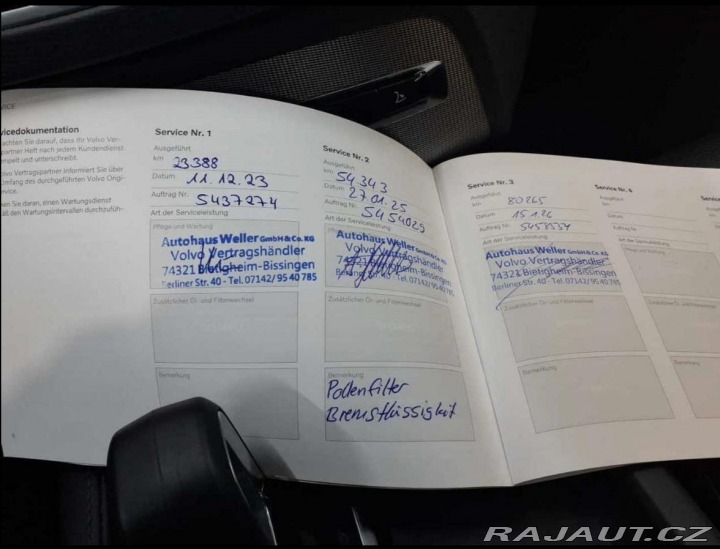 VICE
vicedokumentation
achten Sie darauf, dass Ihr Volvo Ver-
partner Heft nach jedem Kundendienst
empelt und unterschreibt.
olvo Vertragspartner informiert Sie über
mfang des durchgeführten Volvo Origi-
ervice.
en Sie daran, einen Wartungsdienst
äß den Wartungsintervallen durchzufüh-
Service Nr. 1
Ausgeführt
km 23388
Datum 11.12.23
Auftrag Nr. 5437274
Art der Serviceleistung
Pflege und Wartung
Autohaus Weller GmbH & Co. KG
Volvo Vertragshändler
74321 Bietigheim-Bissingen
Berliner Str. 40 - Tel. 07142/95 40 785
Zusätzlicher Öl- und Filterwechsel
Bemerkung
Service Nr. 2
Ausgeführt
km 54343
Datum 27.01.25
Auftrag Nr. 5454029
Art der Serviceleistung
Autohaus Weller GmbH & Co. KG
Volvo Vertragshändler
74321 Bietigheim-Bissingen
Berliner Str. 40 - Tel. 07142/95 40 785
Zusätzlicher Öl- und Filterwechsel
Bemerkung
Pollenfilter
Bremsflüssigkeit
Service Nr. 3
Ausgeführt
km 80265
Datum 15.1.26
Auftrag Nr.
Art der Serviceleistung
Autohaus Weller GmbH & Co. KG
Volvo Vertragshändler
74321 Bietigheim-Bissingen
Berliner Str. 40 - Tel. 07142/95 40 785
Zusätzlicher Öl- und Filterwechsel
Bemerkung
Service Nr. 4
Ausgeführt
km
Datum
Auftrag Nr.
Art der Serviceleistung
Pflege und Wartung
Zusätzlicher Öl- und Filterwechsel
Bemerkung
RAJAUT.CZ